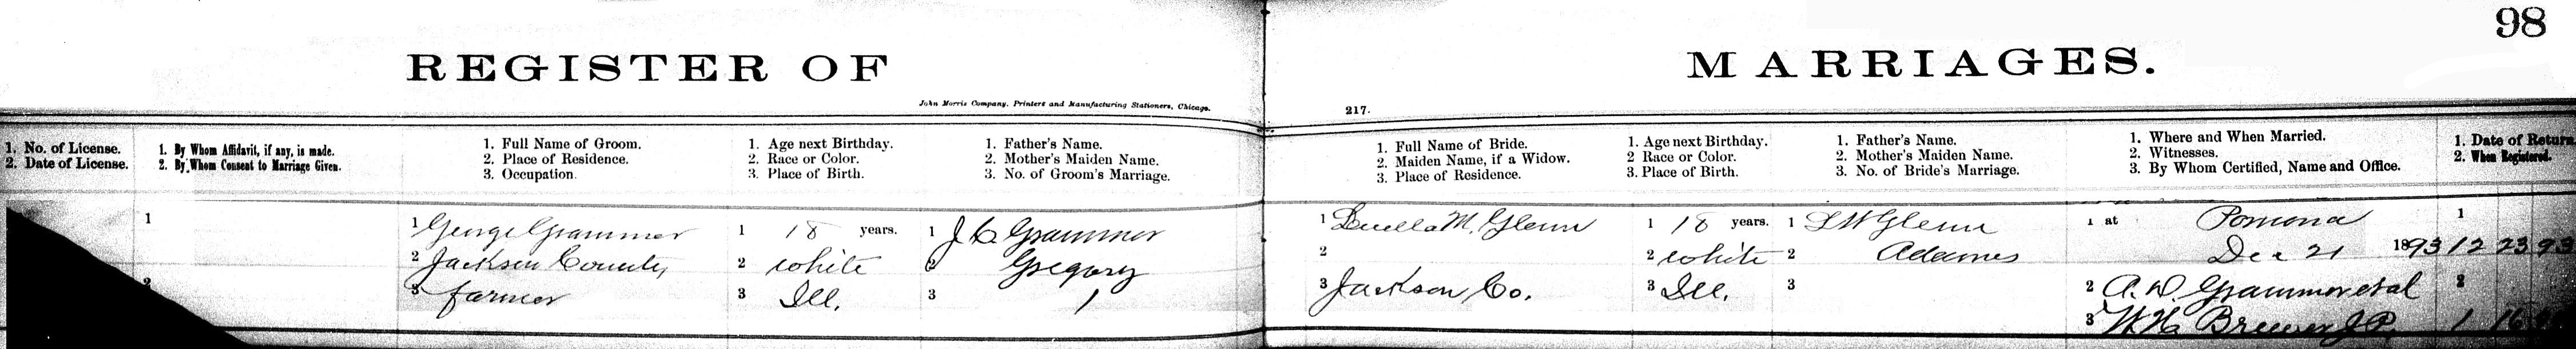 98
REGISTER OF MARRIAGES.
John Morris Company, Printers and Manufacturing Stationers, Chicago.
217.
1. No. of License.
2. Date of License.
1. By Whom Affidavit, if any, is made.
2. By Whom Consent to Marriage Given.
1. Full Name of Groom.
2. Place of Residence.
3. Occupation.
1. Age next Birthday.
2. Race or Color.
3. Place of Birth.
1. Father's Name.
2. Mother's Maiden Name.
3. No. of Groom's Marriage.
1. Full Name of Bride.
2. Maiden Name, if a Widow.
3. Place of Residence.
1. Age next Birthday.
2 Race or Color.
3. Place of Birth.
1. Father's Name.
2. Mother's Maiden Name.
3. No. of Bride's Marriage.
1. Where and When Married.
2. Witnesses.
3. By Whom Certified, Name and Office.
1. Date of Return.
2. When Registered.
1
2
1 George Grammer
2 Jackson County
3 farmer
1 18 years.
2 white
3 Ill.
1 J C Grammer
2 Gregory
3 1
1 Luella M. Glenn
2
3 Jackson Co.
1 18 years.
2 white
3 Ill.
1 L W Glenn
2 Adams
3
1 at Pomona
Dec 21 1893
2 A. D. Grammer et al
3 W. H. Brewer J P.
1
12 23 93
2
1 16